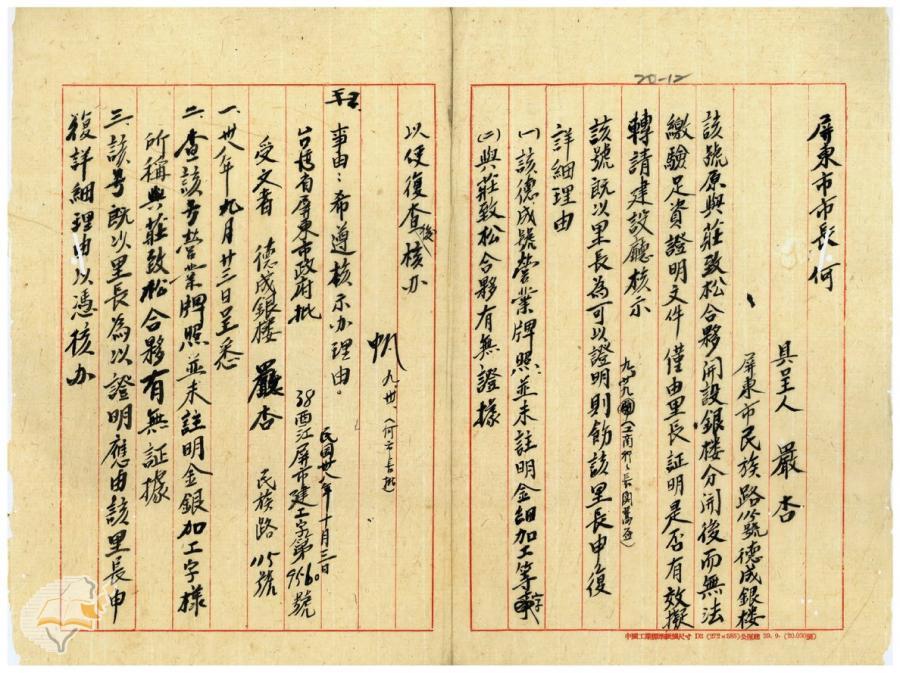 20-12
屏東市市長何
具呈人 嚴杏
屏東市民族路115號德成銀楼
該號原與莊致松合夥開設銀楼分開後而無法
繳驗足資證明文件僅由里長証明是否有效擬
轉請建設廳核示
九、廿九
該號既以里長為可以證明則飭該里長申復
詳細理由
(一)該德成號營業牌照並未註明金銀加工等字
(二)與莊致松合夥有無證據
以便復查後核办
九、卅、
事由:希遵核示办理由。
民國卅八年十月三日
台灣省屏東市政府批
38酉江屏市建工字第9560號
受文者 德成銀楼 嚴杏 民族路115號
一、卅八年九月廿三日呈悉
二、查該号营業牌照並未註明金銀加工字樣
所稱與莊致松合夥有無証據
三、該号既以里長為以證明應由該里長申
復詳細理由以憑核办